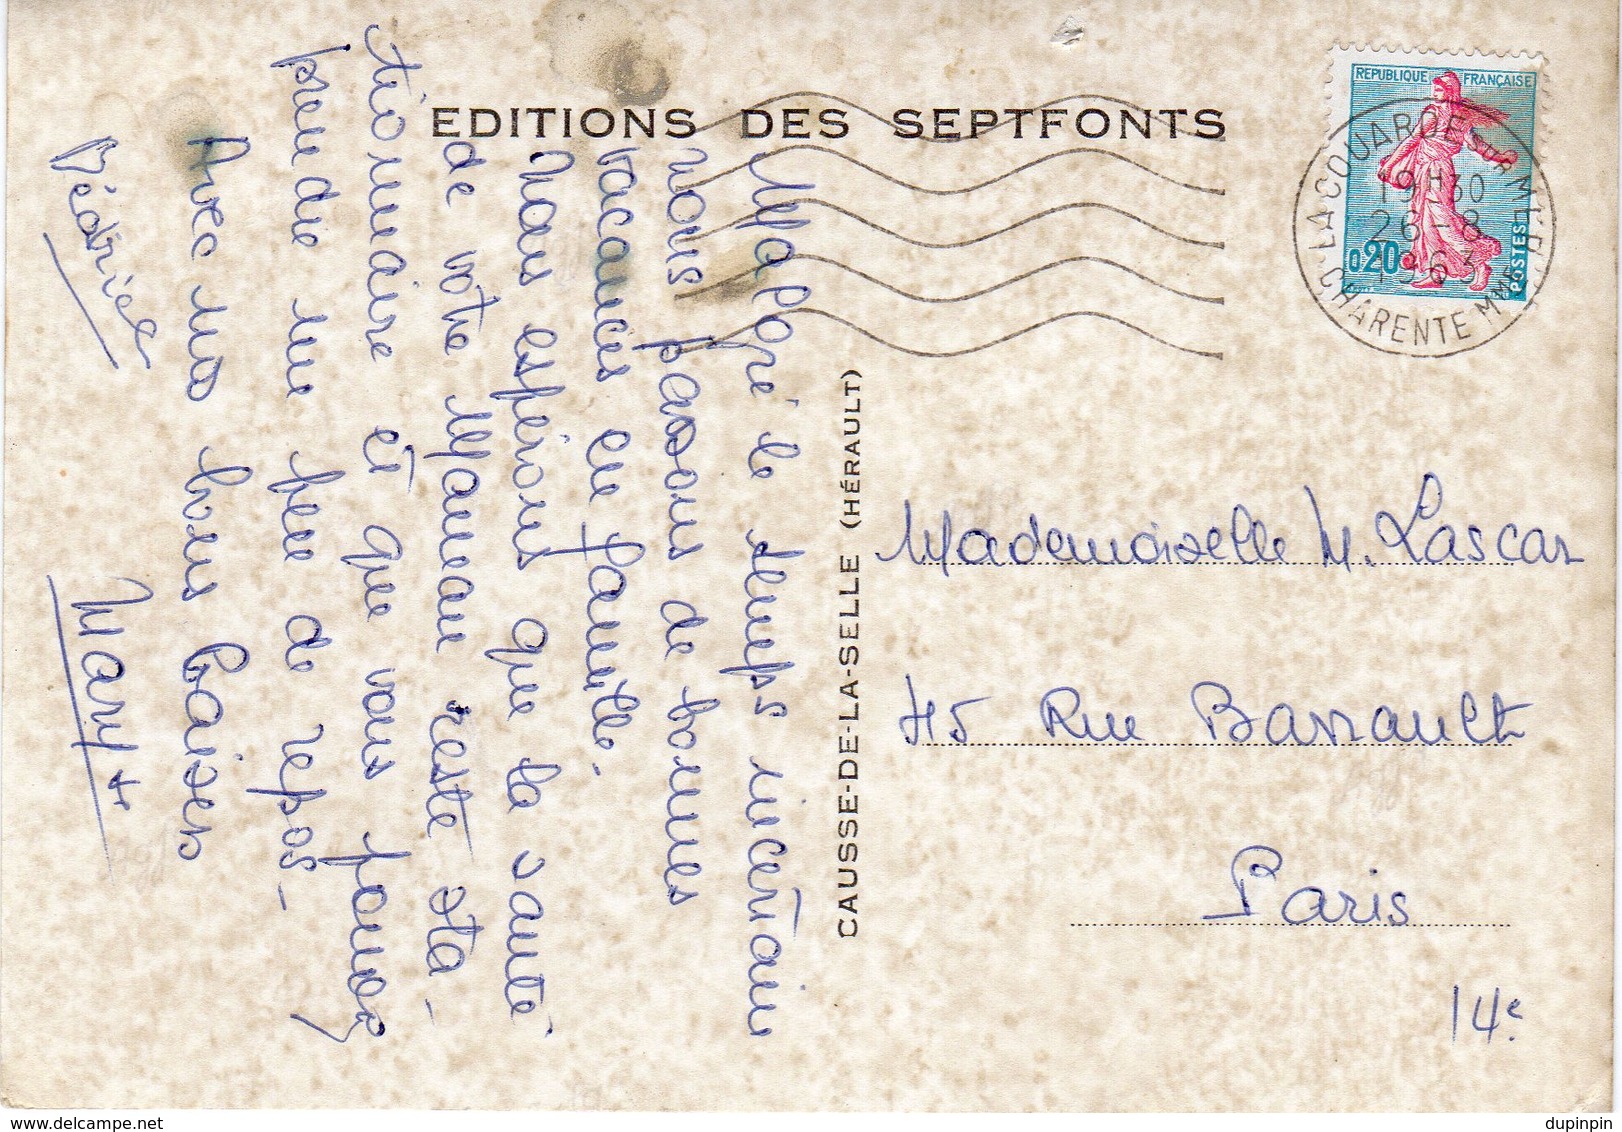 EDITIONS DES SEPTFONTS
CAUSSE-DE-LA-SELLE (HÉRAULT)
REPUBLIQUE FRANÇAISE
0,20
POSTES
LA COUARDE SUR MER
19H30
26-8
1963
CHARENTE MME
Malgré le temps incertain
nous passons de bonnes
vacances en famille.
Nous espérons que la santé
de votre Maman reste sta-
tionnaire et que vous pouvez
prendre un peu de repos-
Avec nos bons Baisers
Mary +
Mademoiselle M. Lascar
45 Rue Barrault
Paris
14e
dupinpin